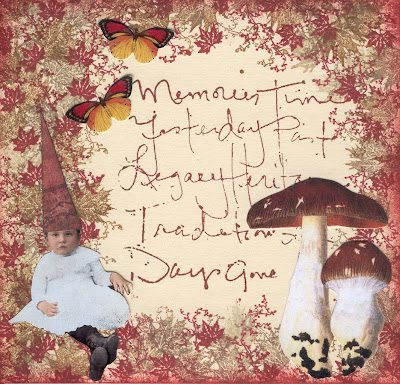 Memories Time
Yesterday Past
Legacy Herita
Traditions
Days Gone